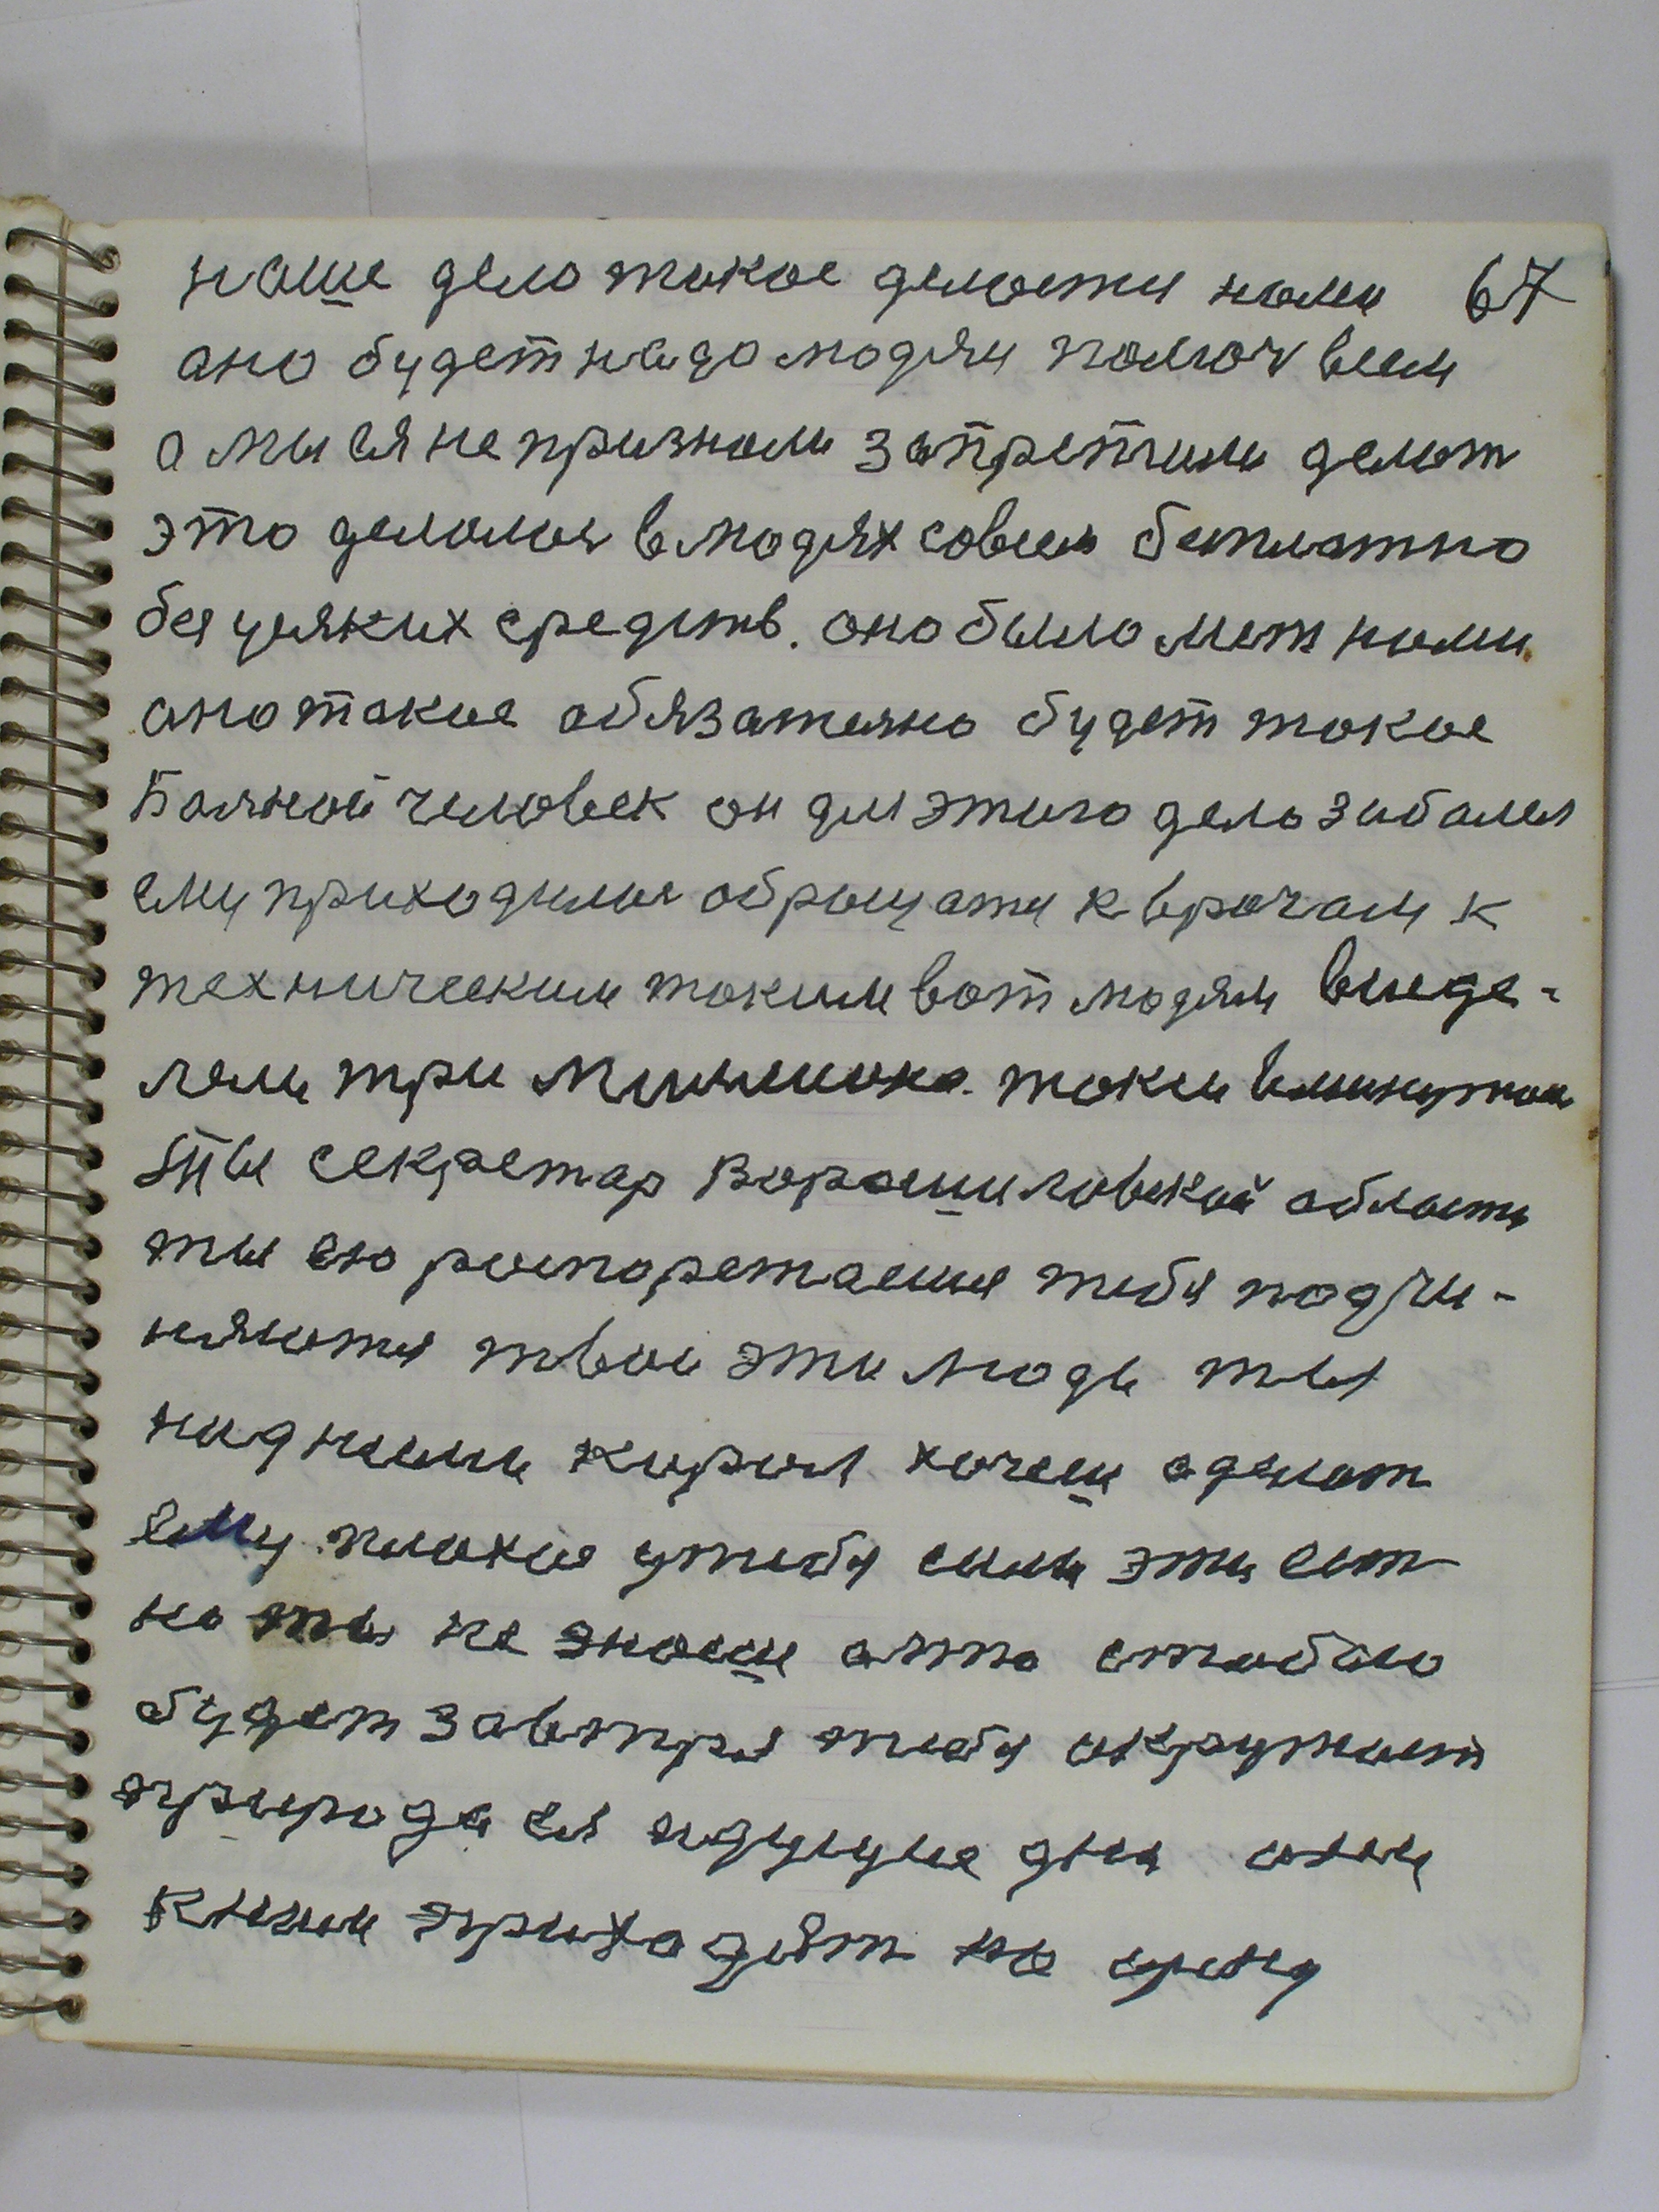 наше дело такое делоетця нами 67
ано будет надо людям помоч всем
а мы ея не признали запретили делат
это делалося в людях совсем бесплатно
без усяких средств. оно было мет нами
ано такое обязателно будет такое
Болной человек он для этого дело заболел
ему приходилося обращатця к врачам к
техническим таким вот людям выде-
лели три милиона. таки в минутах
ты секретар Ворошиловской област
ты ею роспоретаешся тибя подчи-
няютця твои эти люди ты
над ними хочеш зделат
ему плохое у тибя силы эти ест
но ты не знаеш а што стобою
будет завтри тибя окружает
природа ея идущие дни они
к ним приходят не сразу